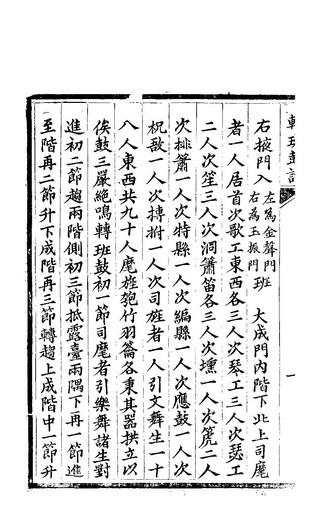 轉班鼓譜
右掖門入左為金聲門右為玉振門班　大成門內階下北上司麾
者一人居首次歌工東西各三人次琴工三人次瑟工
二人次笙三人次洞簫笛各三人次壎一人次箎二人
次排簫一人次特縣一人次編縣一人次應鼓一人次
柷敔一人次搏拊一人次司旌者一人引文舞生一十
八人東西共九十人麾旌匏竹羽籥各秉其器拱立以
俟鼓三嚴絶鳴轉班鼓初一節司麾者引樂舞諸生對
進初二節趨兩階側初三節抵露臺兩隅下再一節進
至階再二節升下成階再三節轉趨上成階中一節升
一